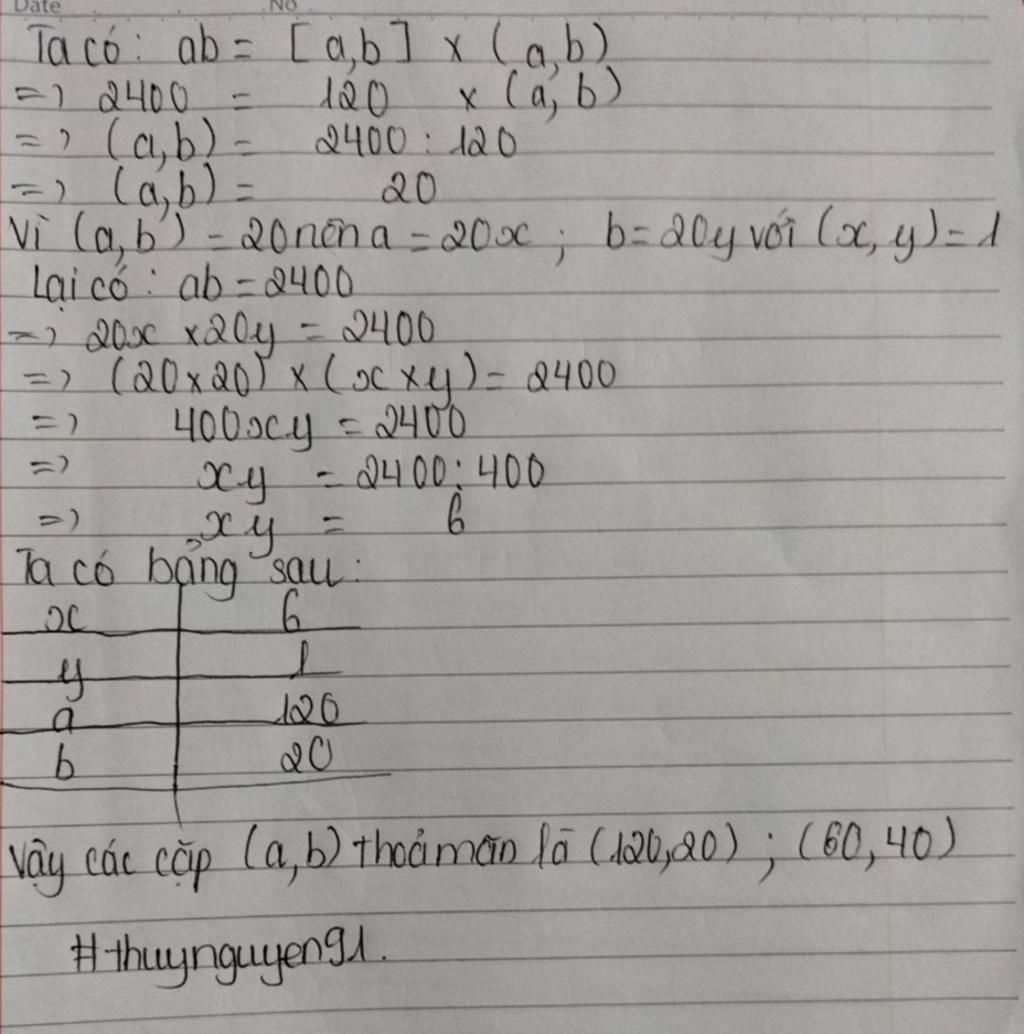 Date No
Ta có: ab = [a,b] x (a,b)
=> 2400 = 120 x (a, b)
=> (a,b) = 2400 : 120
=> (a,b) = 20
Vì (a,b) = 20 nên a = 20x ; b = 20y với (x, y) = 1
Lại có : ab = 2400
=> 20x x 20y = 2400
=> (20 x 20) x (x x y) = 2400
=> 400xy = 2400
=> xy = 2400 : 400
=> xy = 6
Ta có bảng sau:
x 6
y 1
a 120
b 20
Vậy các cặp (a,b) thoả mãn là (120,20) ; (60,40)
#thuynguyen91.